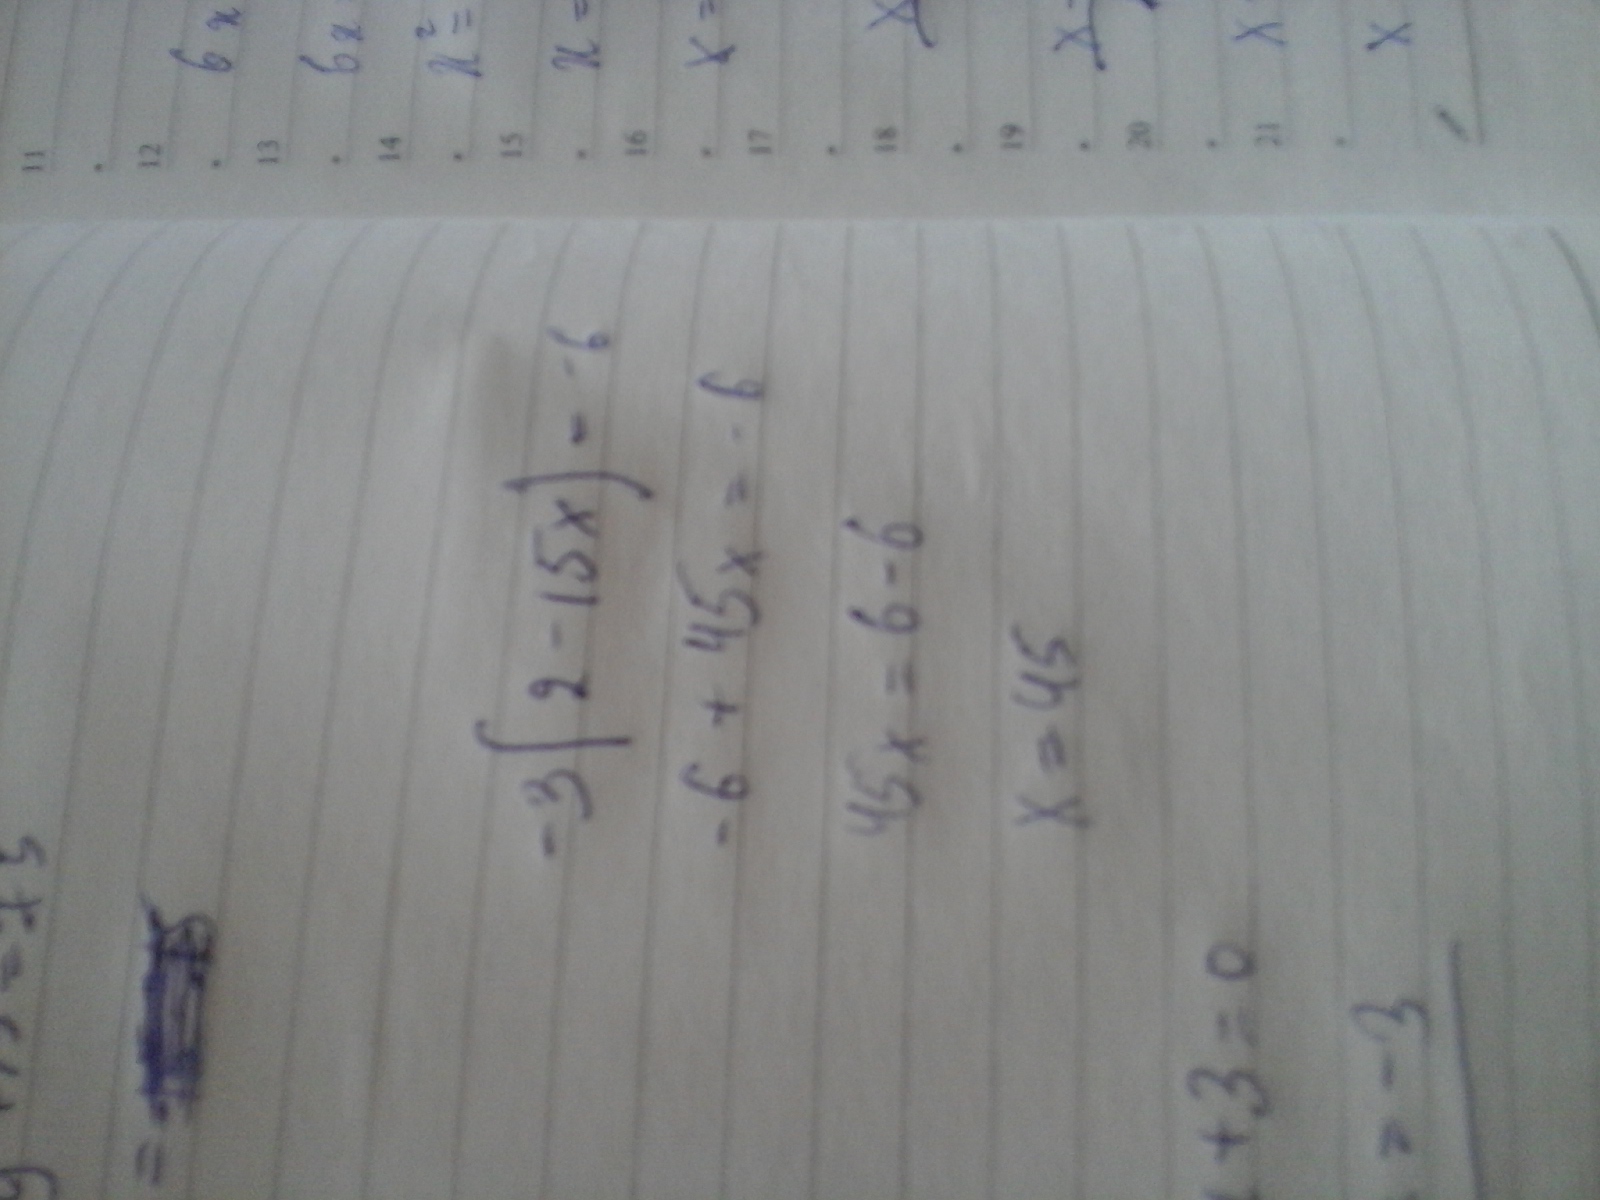 -3(2-15x)=-6
-6+45x=-6
45x=6-6
x=45
+3=0
=-3
11
12
6x
13
6x
14
x²=
15
x=
16
x=
17
18
x
19
x
20
21
x
x